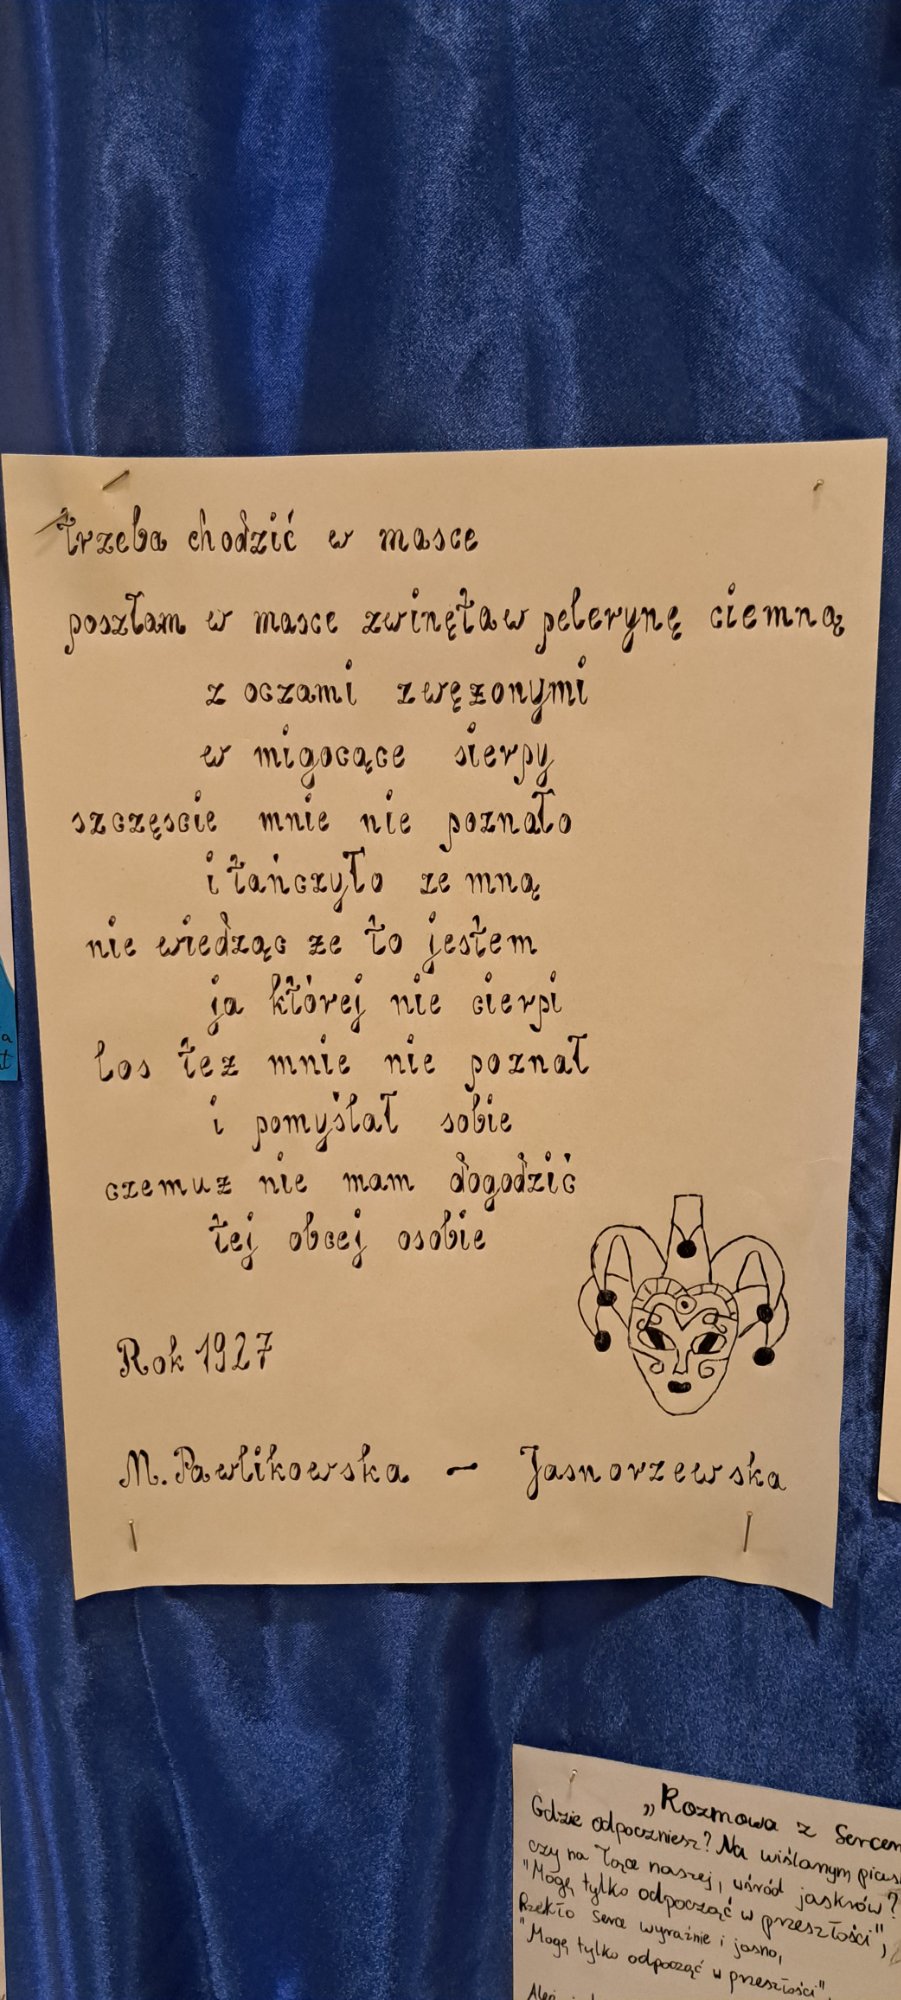 trzeba chodzić w masce
poszłam w masce zwinęta w pelerynę ciemną
z oczami zwężonymi
w migocące sierpy
szczęscie mnie nie poznało
i tańczyło ze mną
nie wiedząc że to jestem
ja której nie cierpi
los też mnie nie poznał
i pomyślał sobie
czemuż nie mam dogodzić
tej obcej osobie
Rok 1927
M. Pawlikowska - Jasnorzewska
„Rozmowa z Sercem
Gdzie odpoczniesz? Na wiślanym
czy na łące naszej, wśród jaskrów?
"Mogę tylko odpocząć w przeszłości",
Rzekło Serce wyraźnie i jasno,
"Mogę tylko odpocząć w przeszłości".